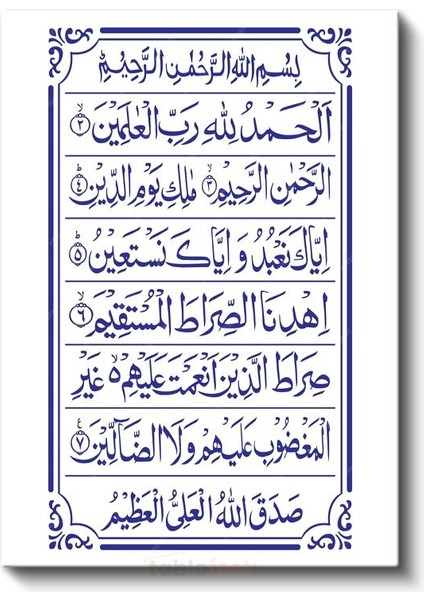 بِسْمِ اللهِ الرَّحْمٰنِ الرَّحِيْمِ
اَلْحَمْدُ لِلّٰهِ رَبِّ الْعٰلَمِيْنَ ۙ﴿٢﴾
الرَّحْمٰنِ الرَّحِيْمِ ۙ﴿٣﴾ مٰلِكِ يَوْمِ الدِّيْنِ ؕ﴿٤﴾
اِيَّاكَ نَعْبُدُ وَ اِيَّاكَ نَسْتَعِيْنُ ؕ﴿٥﴾
اِهْدِنَا الصِّرَاطَ الْمُسْتَقِيْمَ ۙ﴿٦﴾
صِرَاطَ الَّذِيْنَ اَنْعَمْتَ عَلَيْهِمْ ۙ۬ غَيْرِ
الْمَغْضُوْبِ عَلَيْهِمْ وَلَا الضَّآلِّيْنَ ﴿٧﴾
صَدَقَ اللهُ الْعَلِىُّ الْعَظِيْمُ